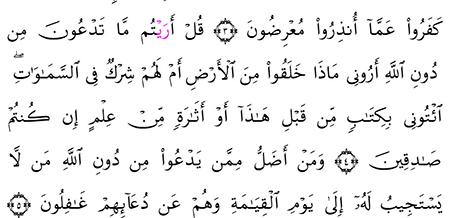 كَفَرُوا۟ عَمَّآ أُنذِرُوا۟ مُعْرِضُونَ ﴿٣﴾ قُلْ أَرَيْتُم مَّا تَدْعُونَ مِن
دُونِ ٱللَّهِ أَرُونِى مَاذَا خَلَقُوا۟ مِنَ ٱلْأَرْضِ أَمْ لَهُمْ شِرْكٌ فِى ٱلسَّمَـٰوَٰتِ ۖ
ٱئْتُونِى بِكِتَـٰبٍ مِّن قَبْلِ هَـٰذَآ أَوْ أَثَـٰرَةٍ مِّنْ عِلْمٍ إِن كُنتُمْ
صَـٰدِقِينَ ﴿٤﴾ وَمَنْ أَضَلُّ مِمَّن يَدْعُوا۟ مِن دُونِ ٱللَّهِ مَن لَّا
يَسْتَجِيبُ لَهُۥٓ إِلَىٰ يَوْمِ ٱلْقِيَـٰمَةِ وَهُمْ عَن دُعَآئِهِمْ غَـٰفِلُونَ ﴿٥﴾